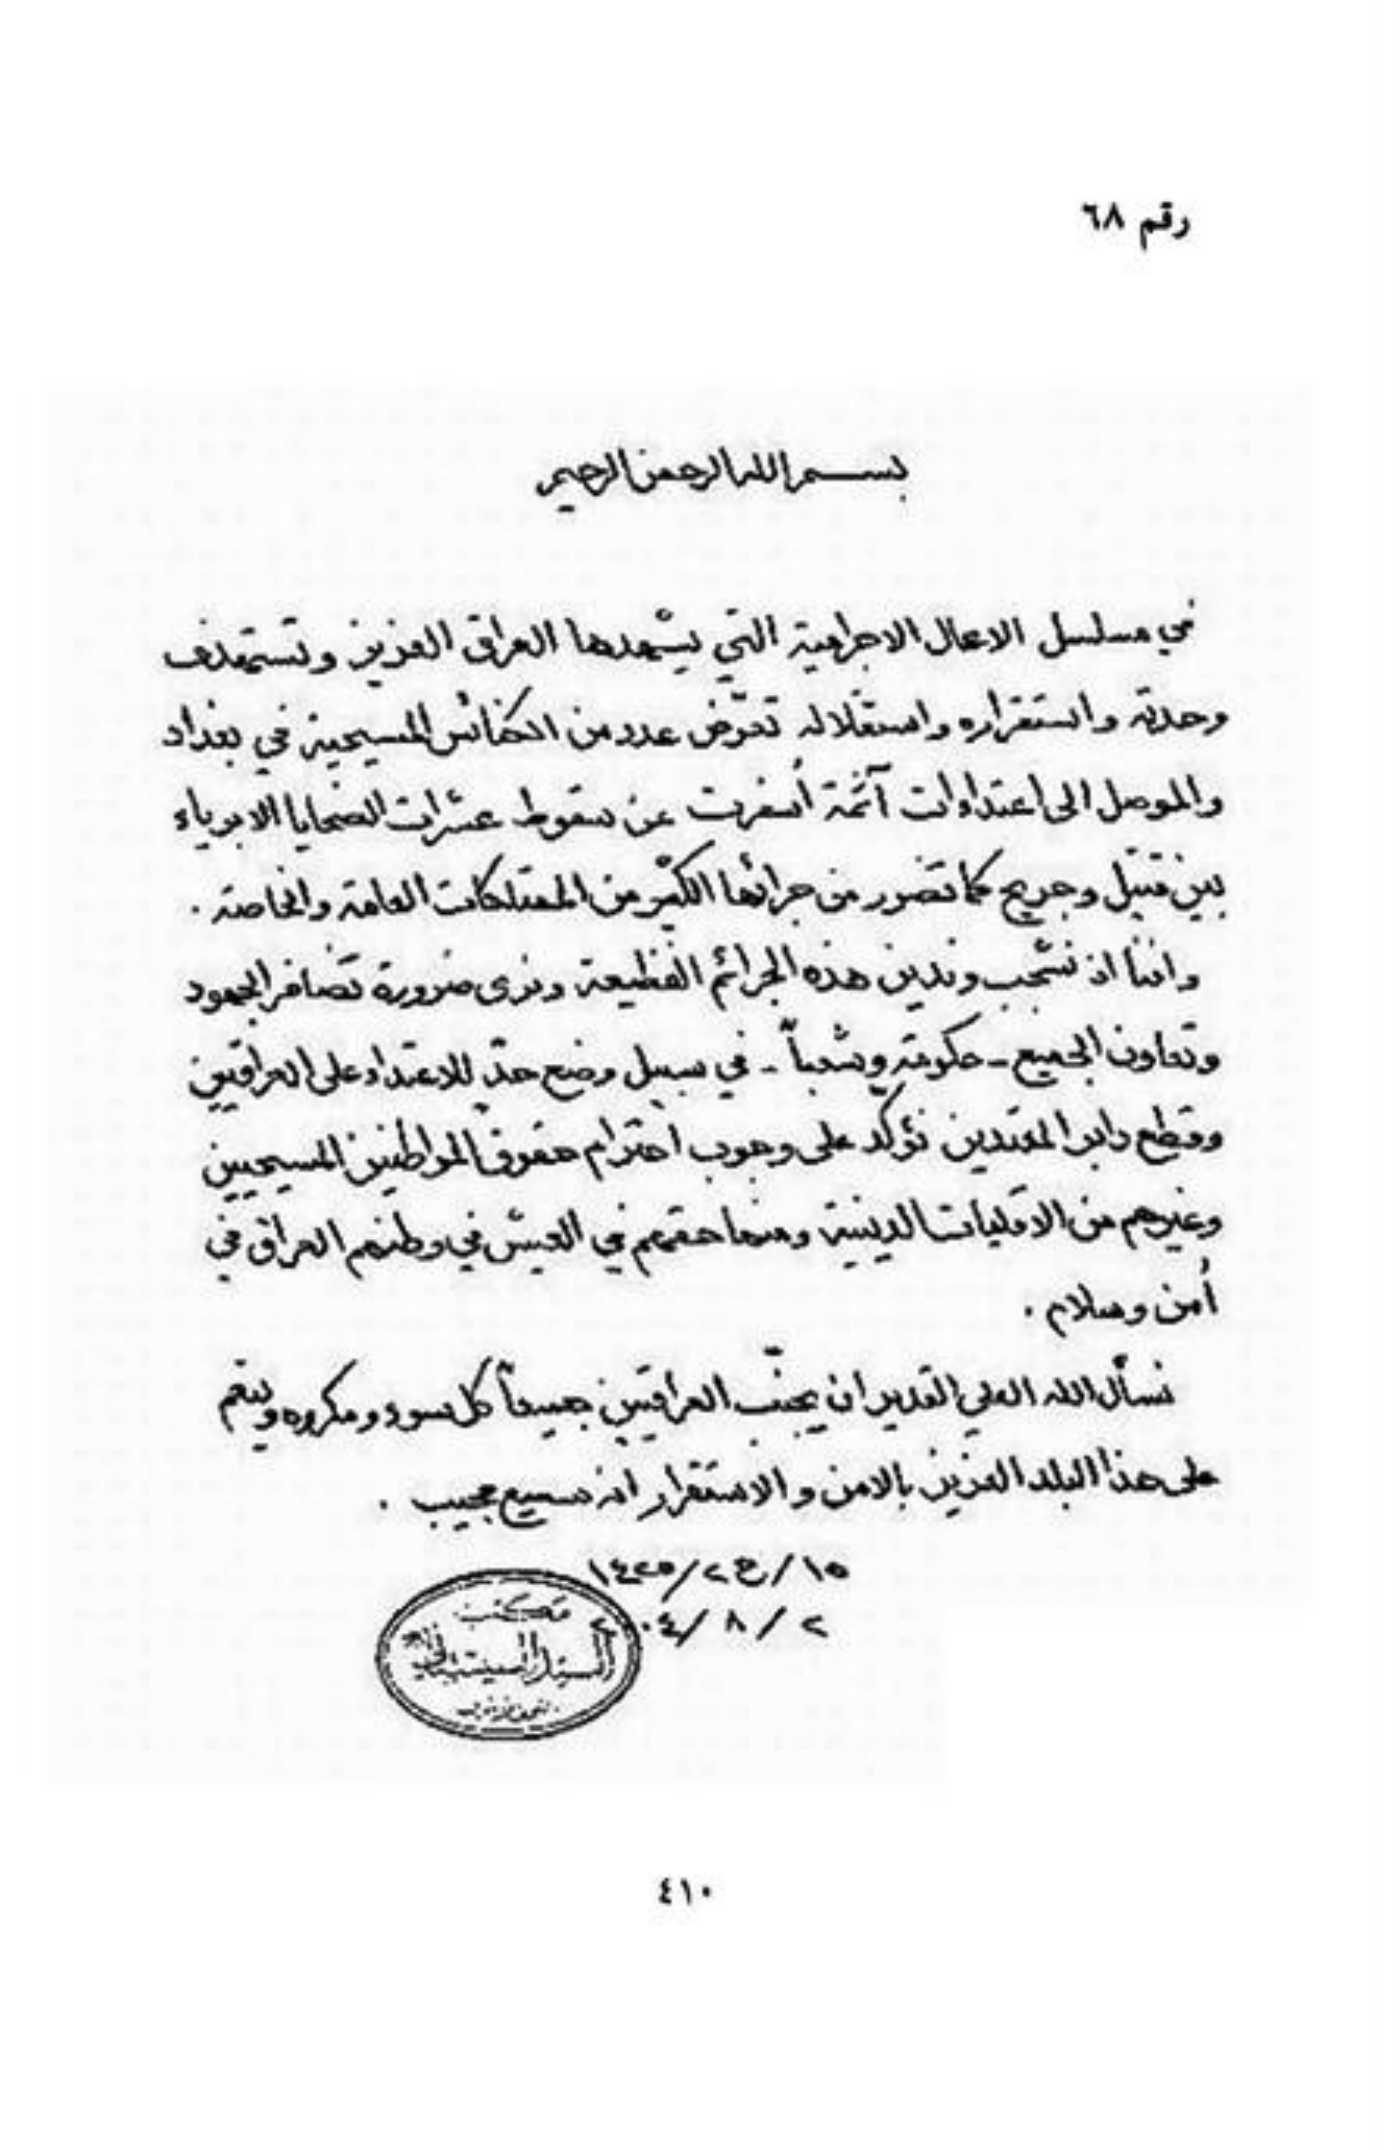 رقم ٦٨
بسم الله الرحمن الرحيم
في مسلسل الاعمال الاجرامية التي يشهدها العراق العزيز وتستهدف
وحدته واستقراره واستقلاله تعرّض عدد من الكنائس المسيحية في بغداد
والموصل الى اعتداءات آثمة أسفرت عن سقوط عشرات الضحايا الابرياء
بين قتيل وجريح كما تضرر من جرائها الكثير من الممتلكات العامة والخاصة .
واننا اذ نشجب وندين هذه الجرائم الفظيعة ونرى ضرورة تضافر الجهود
وتعاون الجميع - حكومة وشعباً - في سبيل وضع حدّ للاعتداء على العراقيين
وقطع دابر المعتدين نؤكد على وجوب احترام حقوق المواطنين المسيحيين
وغيرهم من الاقليات الدينية ومنها حقهم في العيش في وطنهم العراق في
أمن وسلام .
نسأل الله العلي القدير ان يجنّب العراقيين جميعاً كل سوء ومكروه وينعم
على هذا البلد العزيز بالامن والاستقرار انه سميع مجيب .
١٥/ع٢/١٤٢٥
٢/٨/٢٠٠٤
مكتب
السيد السيستاني
النجف الاشرف
٤١٠